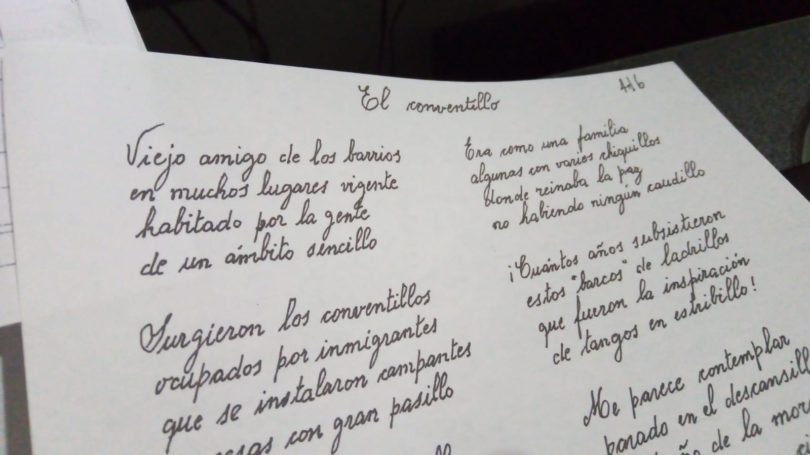 El conventillo
446
Viejo amigo de los barrios
en muchos lugares vigente
habitado por la gente
de un ámbito sencillo
Surgieron los conventillos
ocupados por inmigrantes
que se instalaron campantes
con gran pasillo
Era como una familia
algunas con varios chiquillos
donde reinaba la paz
no habiendo ningún caudillo
¡Cuántos años subsistieron
estos "barcos" de ladrillos
que fueron la inspiración
de tangos en estribillo!
Me parece contemplar
parado en el descansillo
de la